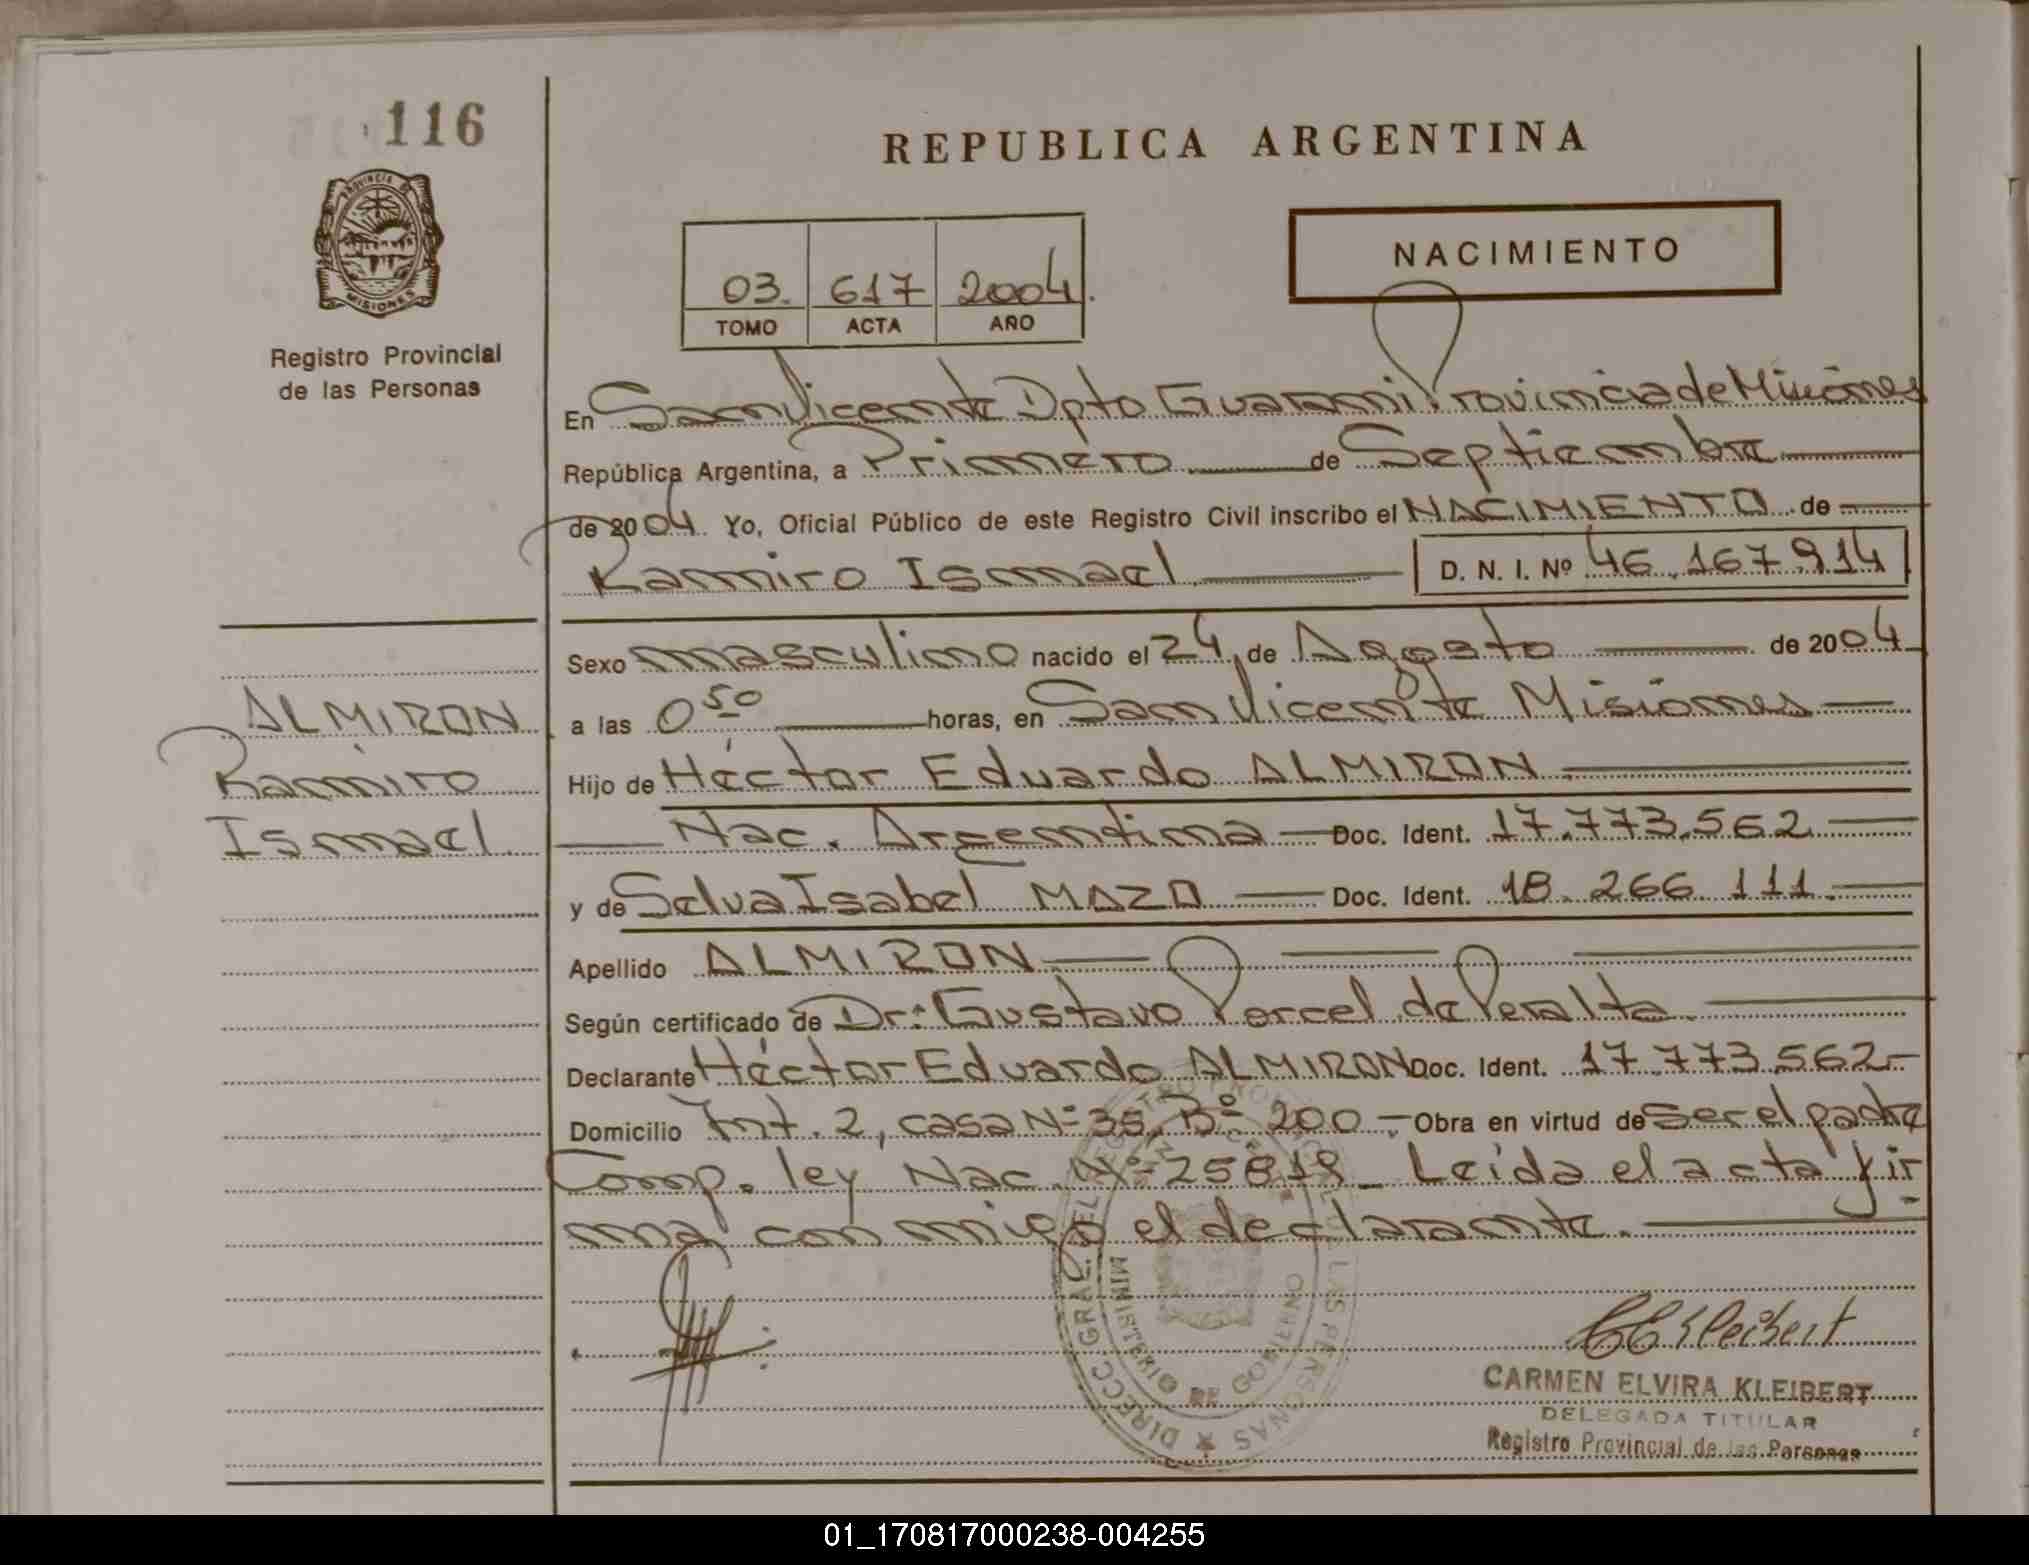 116
REPUBLICA ARGENTINA
PROVINCIA DE MISIONES
Registro Provincial
de las Personas
NACIMIENTO
03. 617 2004.
TOMO ACTA AÑO
En San Vicente Dpto Guaraní Provincia de Misiones
República Argentina, a Primero de Septiembre
de 2004. Yo, Oficial Público de este Registro Civil inscribo el NACIMIENTO de
Ramiro Ismael D. N. I. Nº 46.167.914
Sexo masculino nacido el 24 de Agosto de 2004
a las 0 50 horas, en San Vicente Misiones
Hijo de Héctor Eduardo ALMIRON
Nac. Argentina Doc. Ident. 17.773.562
y de Selva Isabel MAZO Doc. Ident. 18.266.111.
Apellido ALMIRON
Según certificado de Dr: Gustavo Porcel de Peralta
Declarante Héctor Eduardo ALMIRON Doc. Ident. 17.773.562-
Domicilio Int. 2, casa Nº 35, Bº 200 - Obra en virtud de ser el padre
Comp. ley Nac. Nº 25818_ Leída el acta fir
ma conmigo el declarante.
ALMIRON
Ramiro
Ismael
DIRECC GRAL. DEL REGISTRO PROVINCIAL DE LAS PERSONAS
MINISTERIO DE GOBIERNO
CARMEN ELVIRA KLEIBERT
DELEGADA TITULAR
Registro Provincial de las Personas
01_170817000238-004255